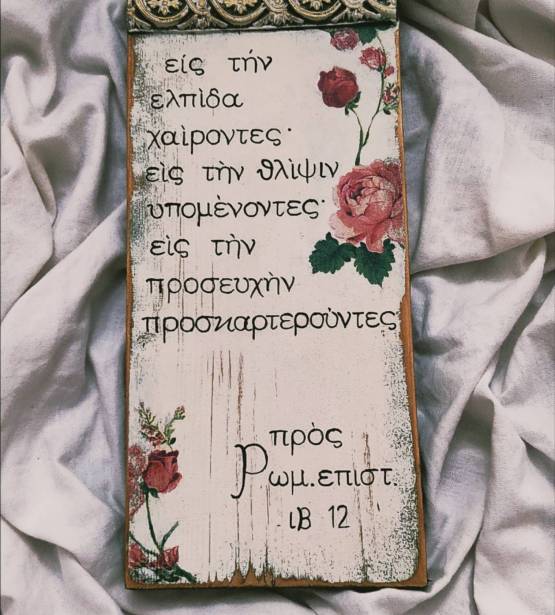 είς τήν
ελπὶδα
χαὶροντες·
εὶς τὴν θλὶψιν
υπομὲνοντες·
εὶς τὴν
προσευχὴν
προσκαρτεροὺντες
πρὸς
Ρωμ.επιστ.
ιΒ 12